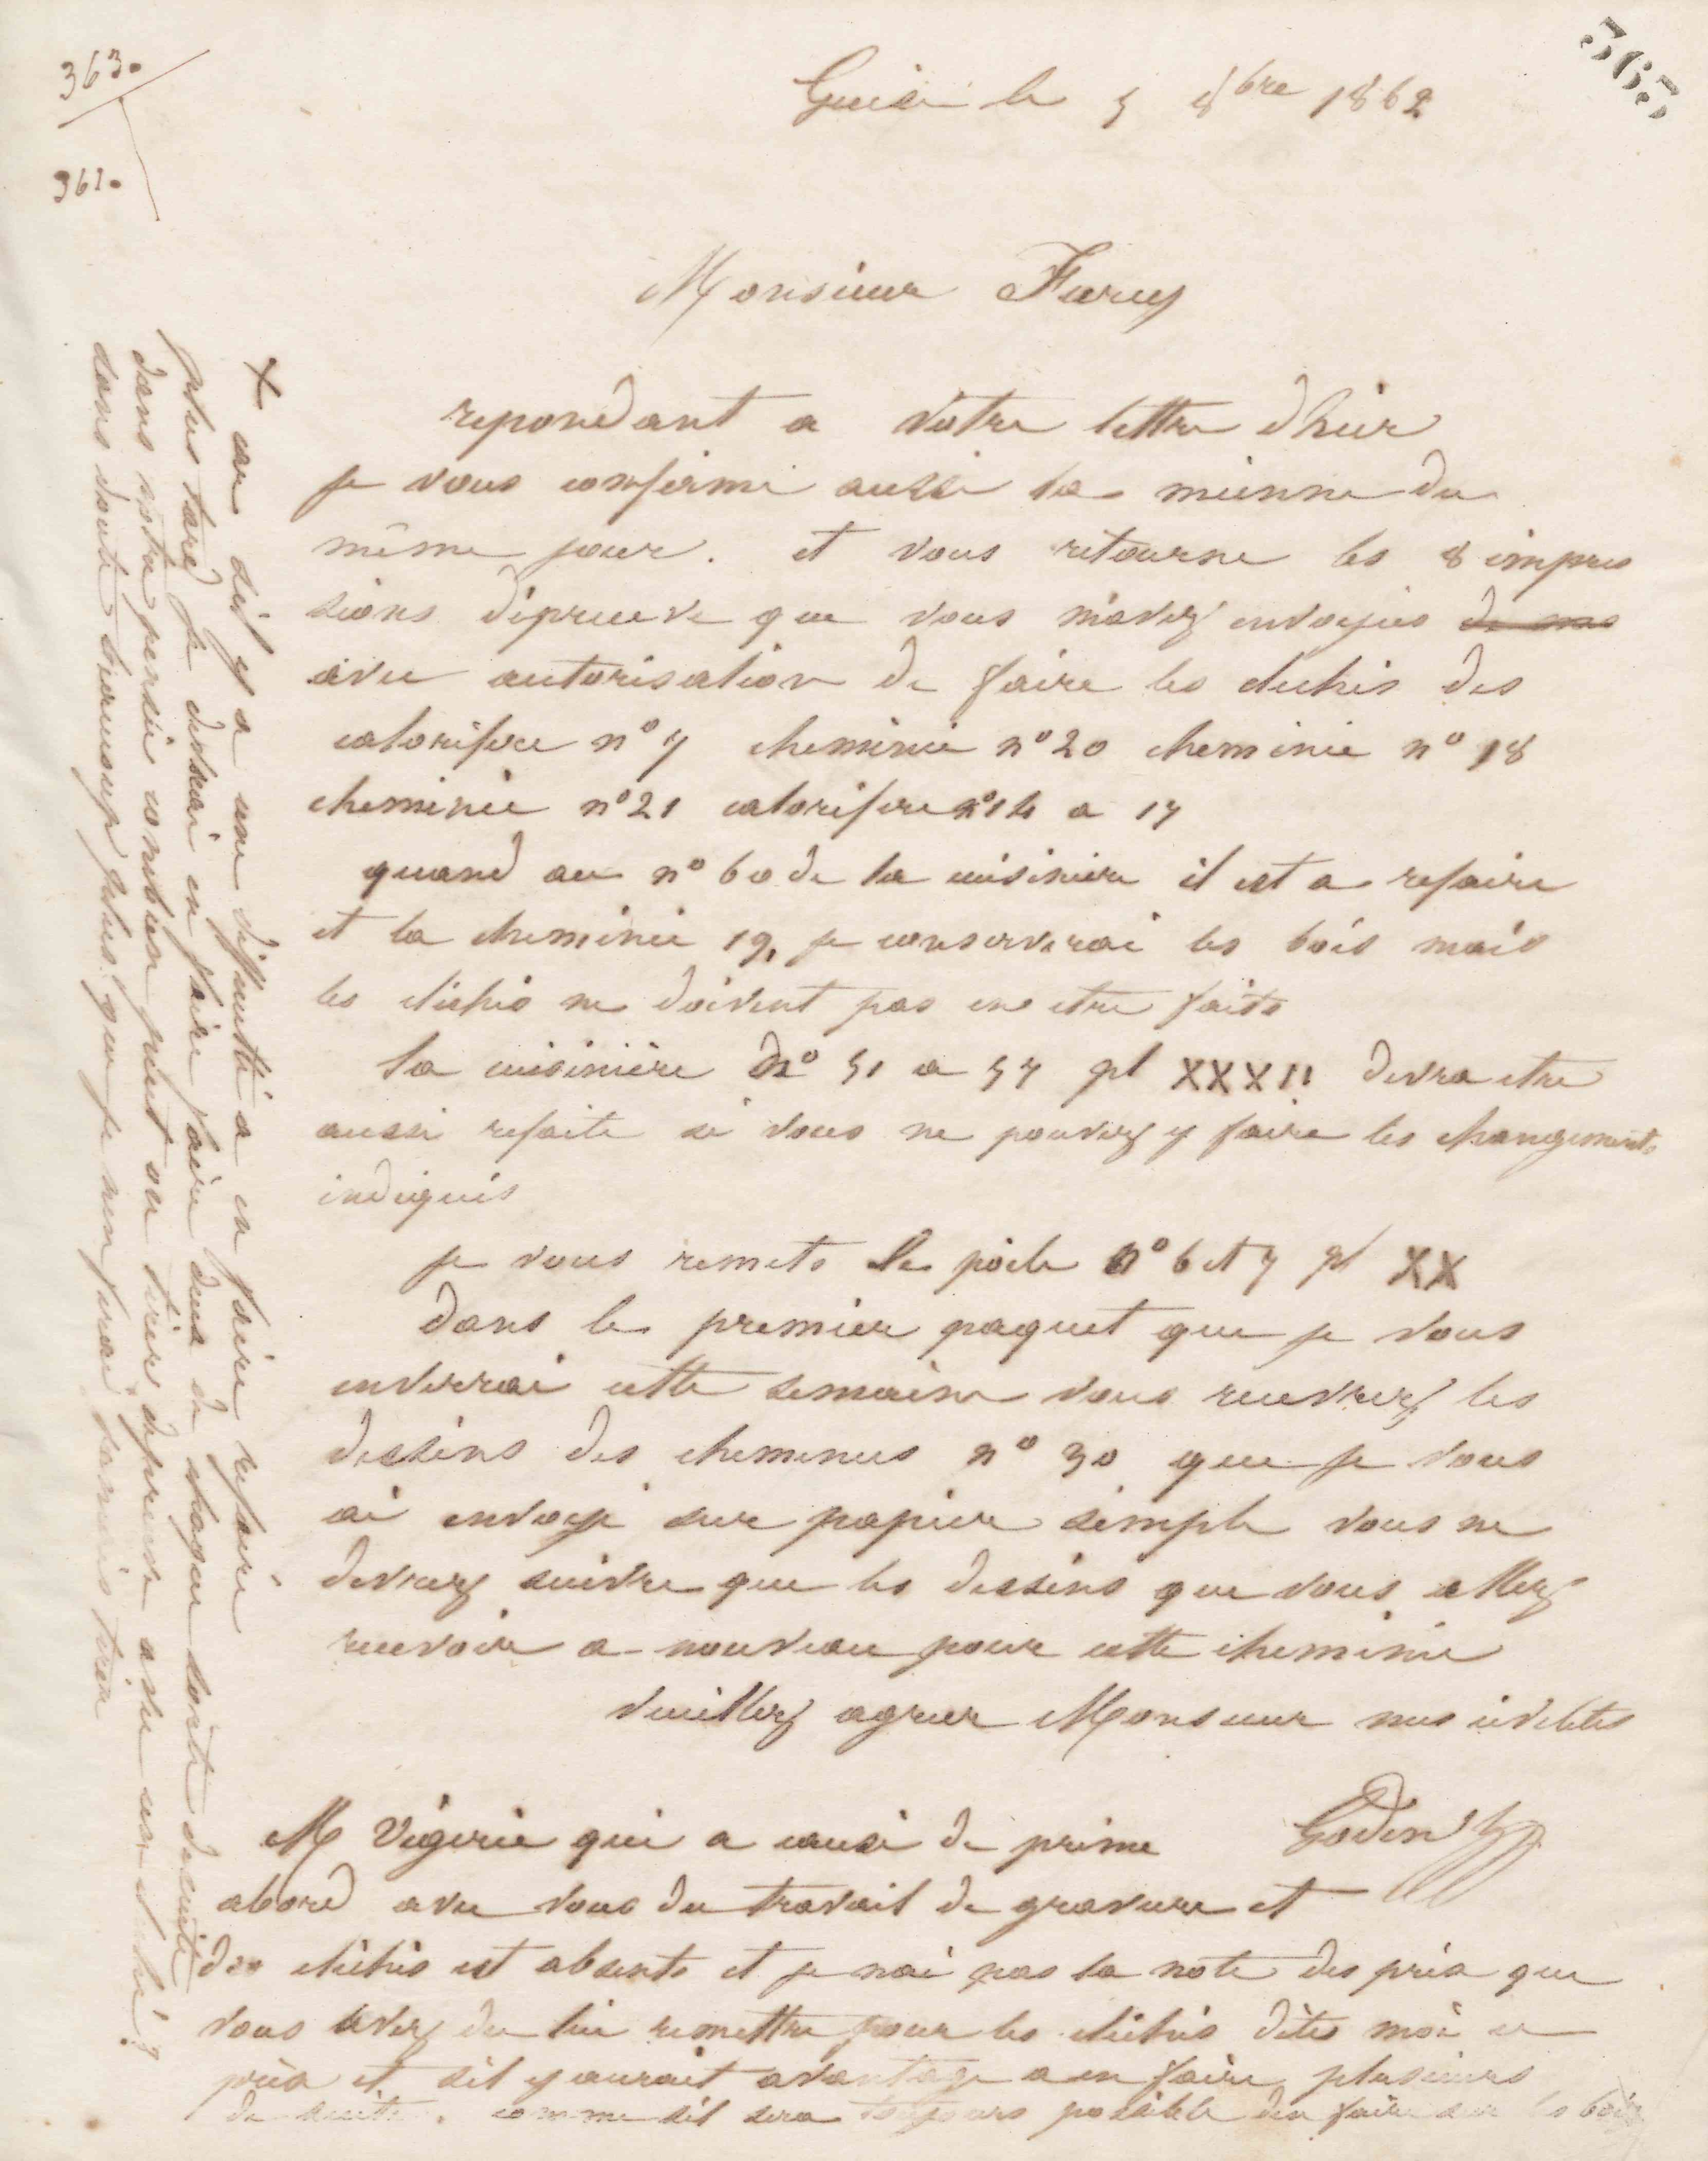 363.
361.
365
Guise le 5 8bre 1862
Monsieur Furcy
repondant a votre lettre dhier
je vous confirme aussi la mienne du
même jour. et vous retourne les 8 impres
sions dépreuve que vous mavez envoyées de mes
avec autorisation de faire les clichés des
calorifere n° 7 cheminée n° 20 cheminée n° 18
cheminée n° 21 calorifere n° 14 a 17
quand au n° 60 de la cuisiniere il est a refaire
et la cheminée 19, je conserverai les bois mais
les clichés ne doivent pas en etre faits
la cuisinière n° 51 a 57 pl XXXII devra etre
aussi refaite si vous ne pouvez y faire les changements
indiqués
je vous remets le poële n° 6 et 7 pl XX
dans le premier paquet que je vous
enverrai cette semaine vous recevrez les
dessins des cheminees n° 30 que je vous
ai envoyé sur papier simple vous ne
devrez suivre que les dessins que vous allez
recevoir a nouveau pour cette cheminée
veuillez agreer Monsieur mes civilités
Godin
M Vigerie qui a causé de prime
abord avec vous du travail de gravure et
des clichés est absents et je nai pas la note des prix que
vous avez du lui remettre pour les clichés dites moi ce
prix et sil y aurait avantage a en faire plusieurs
de suite. comme sil sera toujours possible den faire sur les bois
x car sil y a une difficulté a en faire refaire
plus tard je desirai en faire faire deux de chaque sorte de suite
dans votre pensée combien peut on tirer depreuve avec un cliché?
sans doute beaucoup plus que je nen ferai jamais tirer